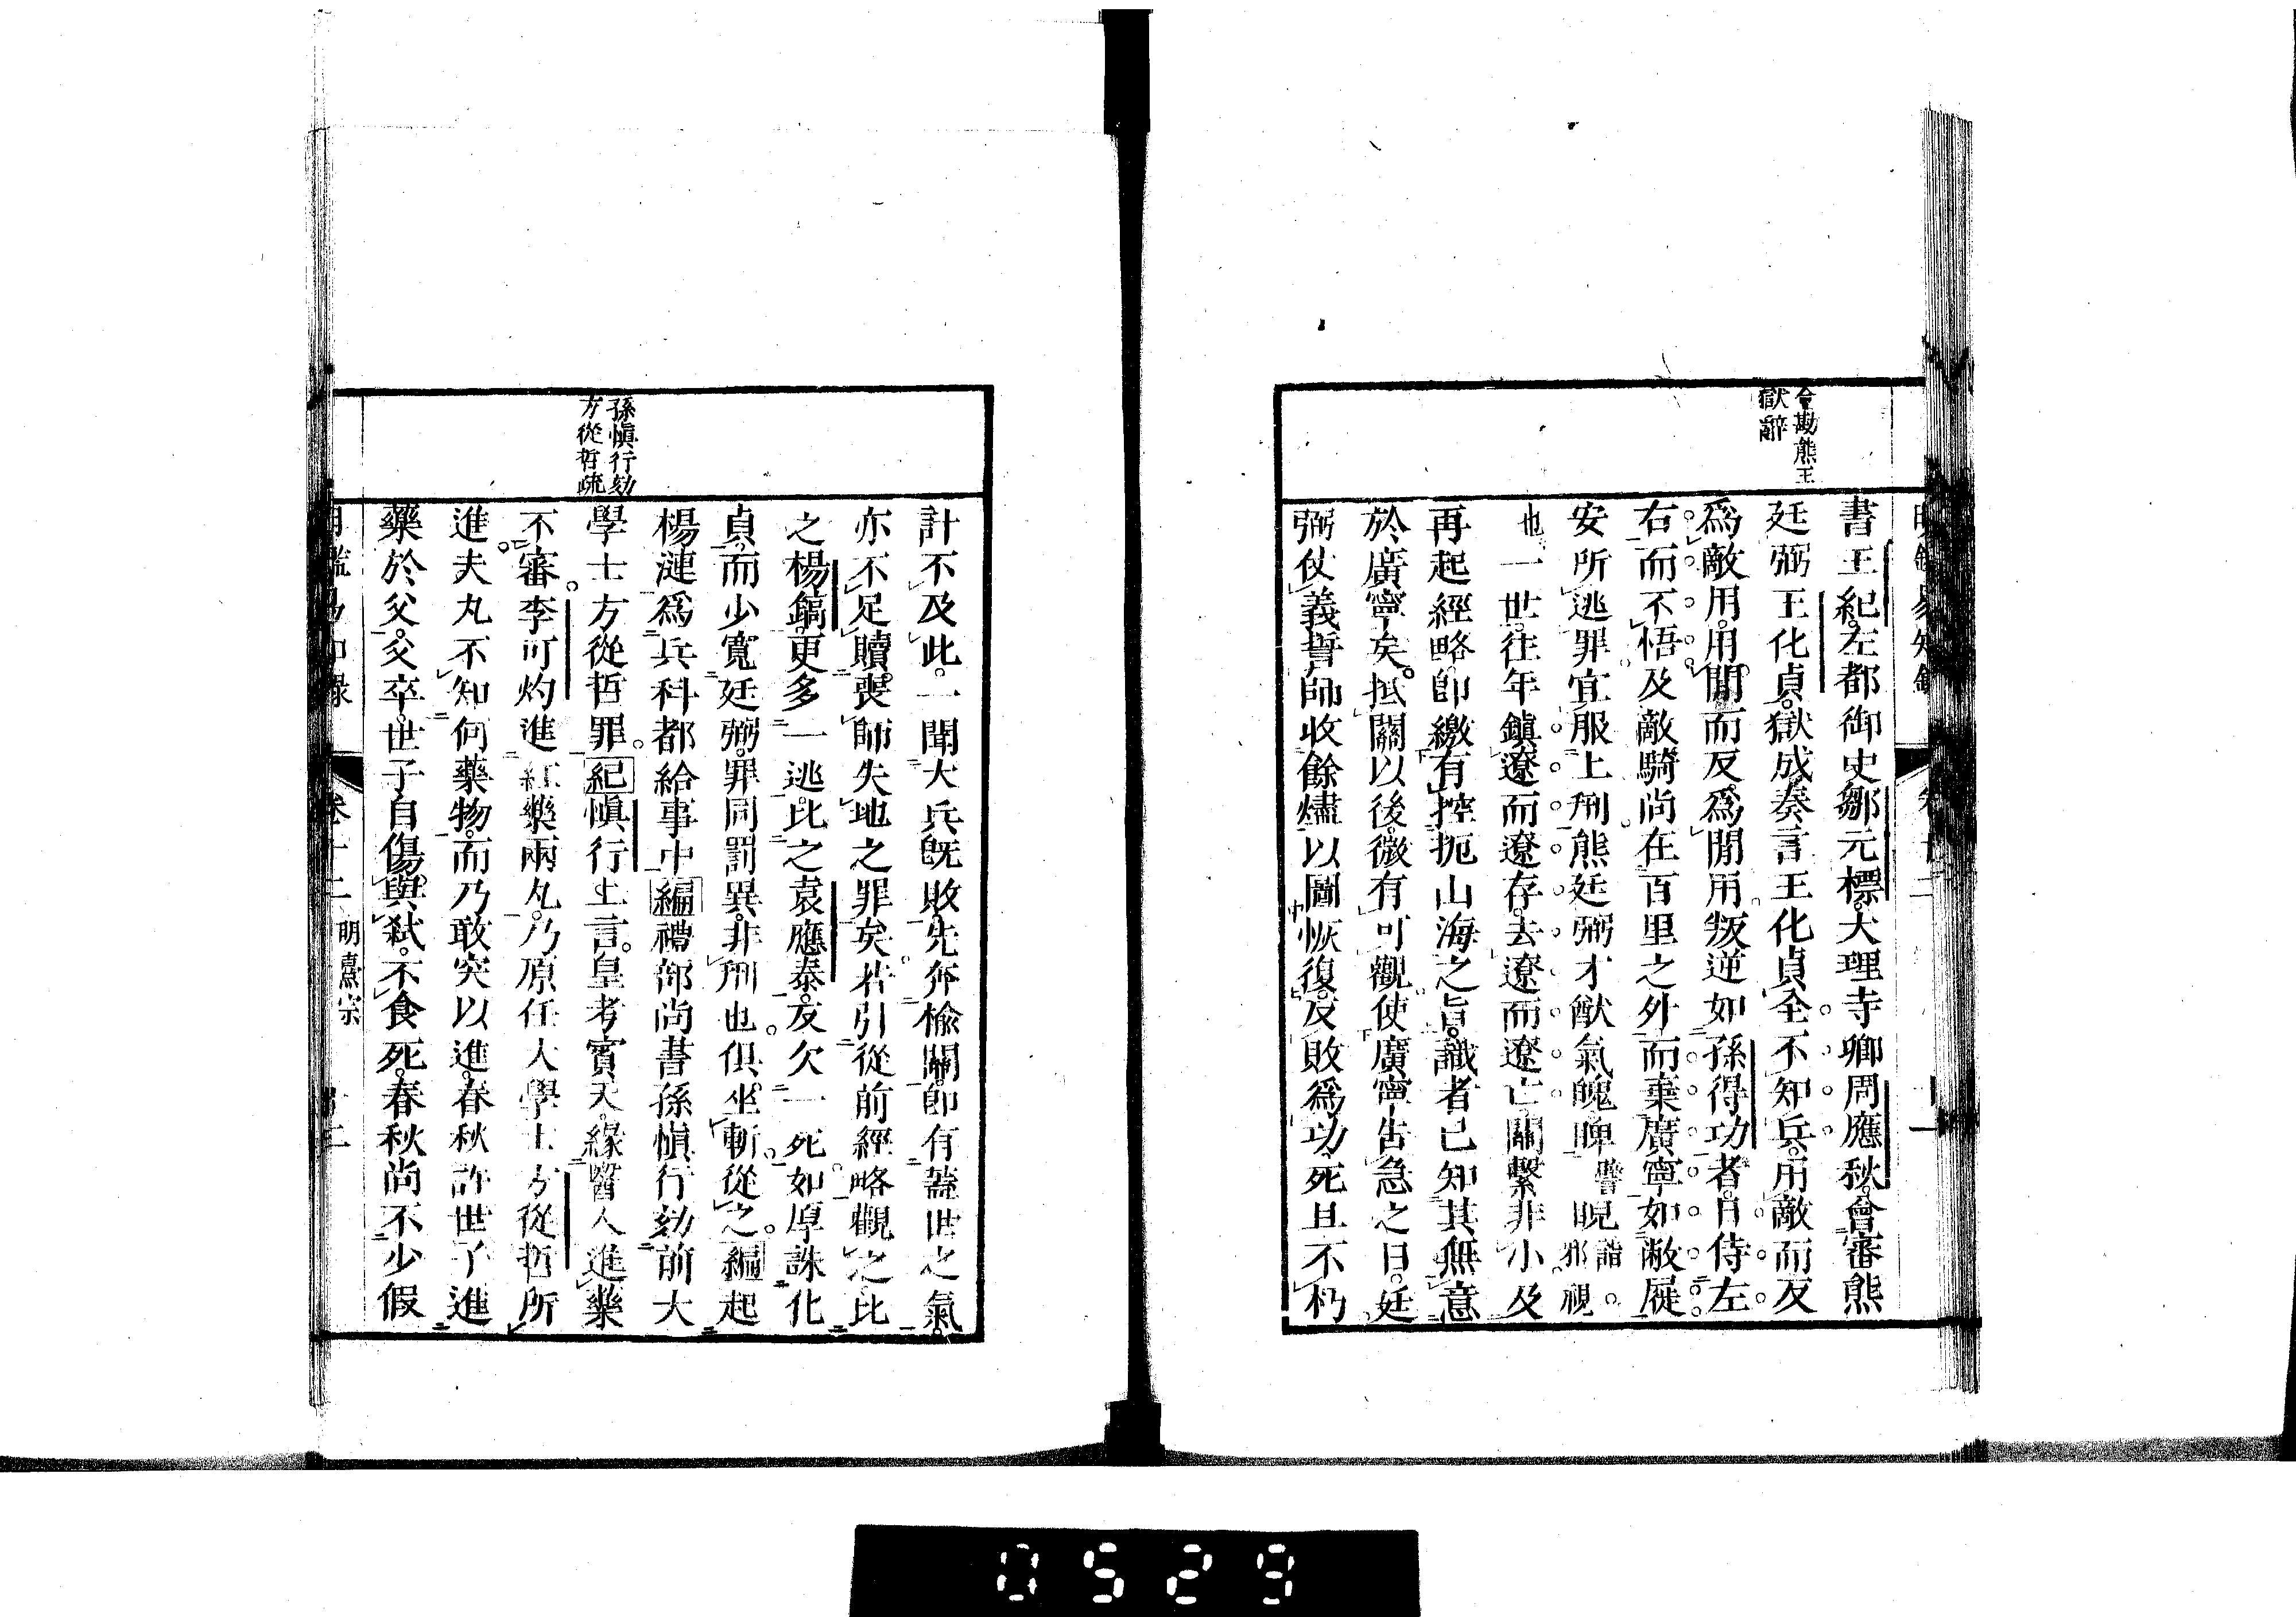 會勘熊王
獄辭
書王紀左都御史鄒元標大理寺卿周應秋會審熊
廷弼王化貞獄成奏言王化貞全不知兵用敵而反
爲敵用用閒而反爲閒用叛逆如孫得功者日侍左
右而不悟及敵騎尚在百里之外而棄廣寧如敝屣
安所逃罪宜服上刑熊廷弼才猷氣魄睥譬睨詣邪視
也一世往年鎭遼而遼存去遼而遼亡關繫非小及
再起經略卽繳有控扼山海之旨識者已知其無意
於廣寧矣抵關以後微有可觀使廣寧告急之日廷
弼仗義誓師收餘燼以圖恢復反敗爲功死且不朽
孫愼行劾
方從哲疏
計不及此一聞大兵旣敗先奔楡關卽有蓋世之氣
亦不足贖喪師失地之罪矣若引從前經略觀之比
之楊鎬更多一逃比之袁應泰反欠一死如厚誅化
貞而少寬廷弼罪同罰異非刑也俱坐斬從之編起
楊漣爲兵科都給事中編禮部尚書孫愼行劾前大
學士方從哲罪紀愼行上言皇考賓天緣醫人進藥
不審李可灼進紅藥兩丸乃原任大學士方從哲所
進夫丸不知何藥物而乃敢突以進春秋許世子進
藥於父父卒世子自傷與弑不食死春秋尚不少假
明鑑易知錄 卷十二 明熹宗